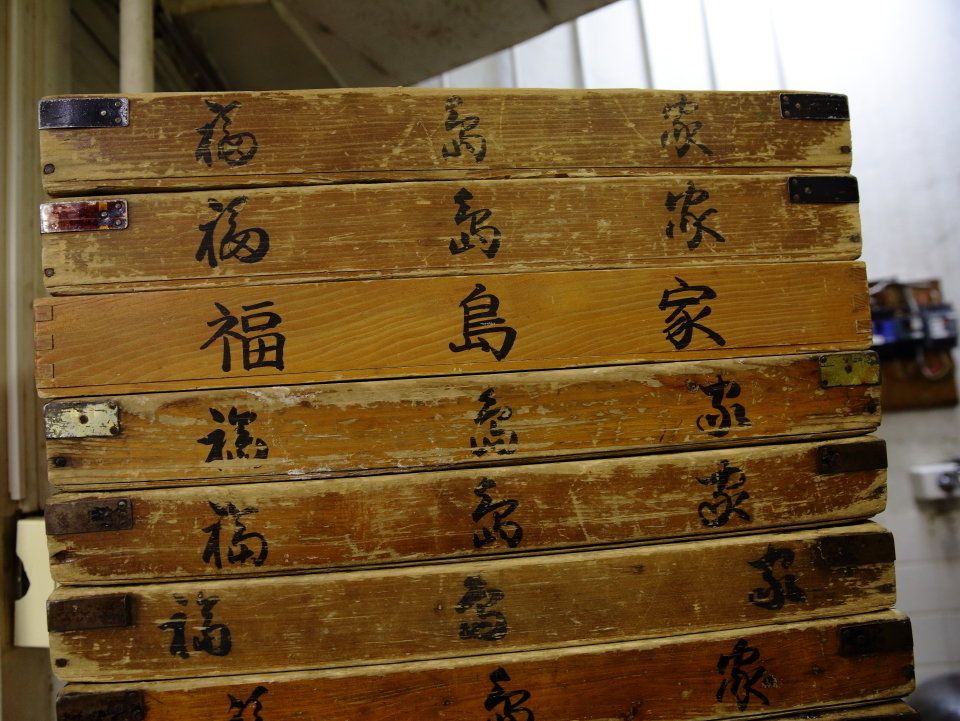 福島家
福島家
福島家
福島家
福島家
福島家
福島家